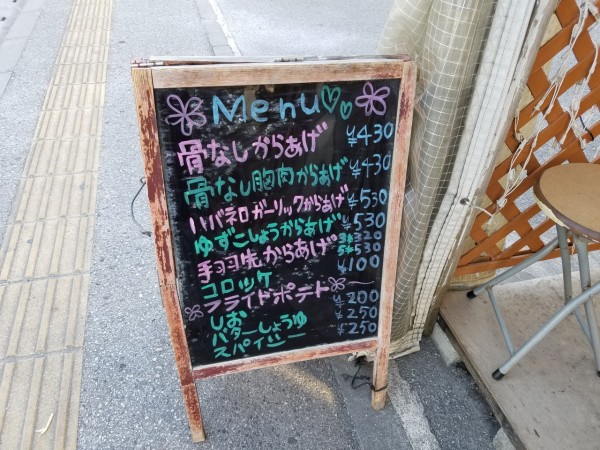 Menu
骨なしからあげ ¥430
骨なし胸肉からあげ ¥430
ハバネロガーリックからあげ ¥530
ゆずこしょうからあげ ¥530
手羽先からあげ 3本320 5本530
コロッケ ¥100
フライドポテト
しお ¥200
バターしょうゆ ¥250
スパイシー ¥250